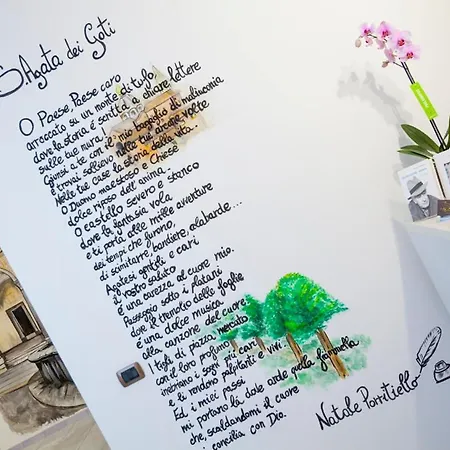 S. Agata dei Goti
O Paese, Paese caro
arroccato su un monte di tufo,
dove la storia è scritta a chiare lettere
sulle tue mura.
Giunsi a te con il mio bagaglio di malinconia
trovai sollievo nelle tue arcane volte
Nelle tre case la storia della vita..
O Duomo maestoso e Chiese
dolce riposo dell'anima.
O castello severo e stanco
dove la fantasia vola
e ti porta alle mille avventure
dei tempi che furono,
di scimitarre, bandiere, alabarde...
Agatesi gentili e cari
il vostro saluto
è una carezza al cuore mio.
Passeggio sotto i platani
dove il tremolio delle foglie
è una dolce musica
alla canzone del cuore
I tigli di piazza mercato
con il loro profumo
inebriano i sogni più cari
e li rendono palpitanti e vivi
Ed i miei passi
mi portano là dove arde quella fiammella
che, scaldandomi il cuore
concilia con Dio.
Natale Porritiello